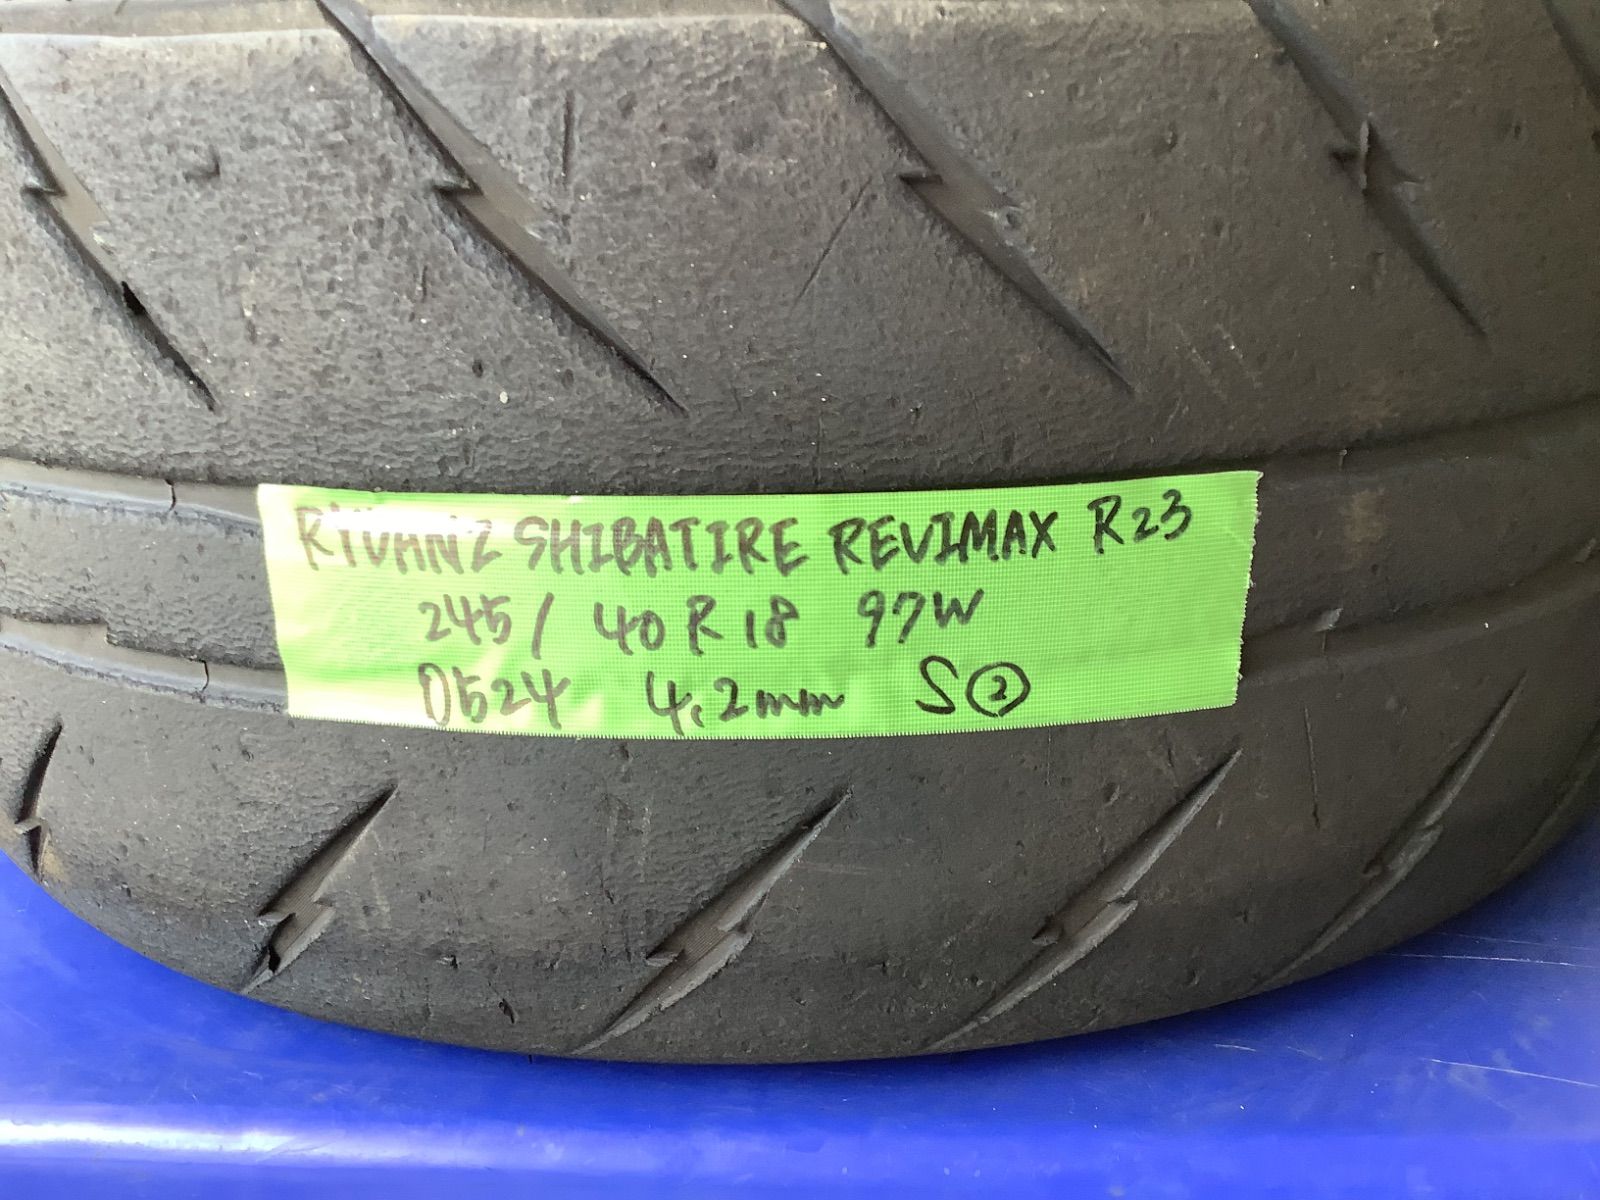 RYDANZ SHIBATIRE REVIMAX R23
245/ 40R18 97W
0524 4.2mm S②